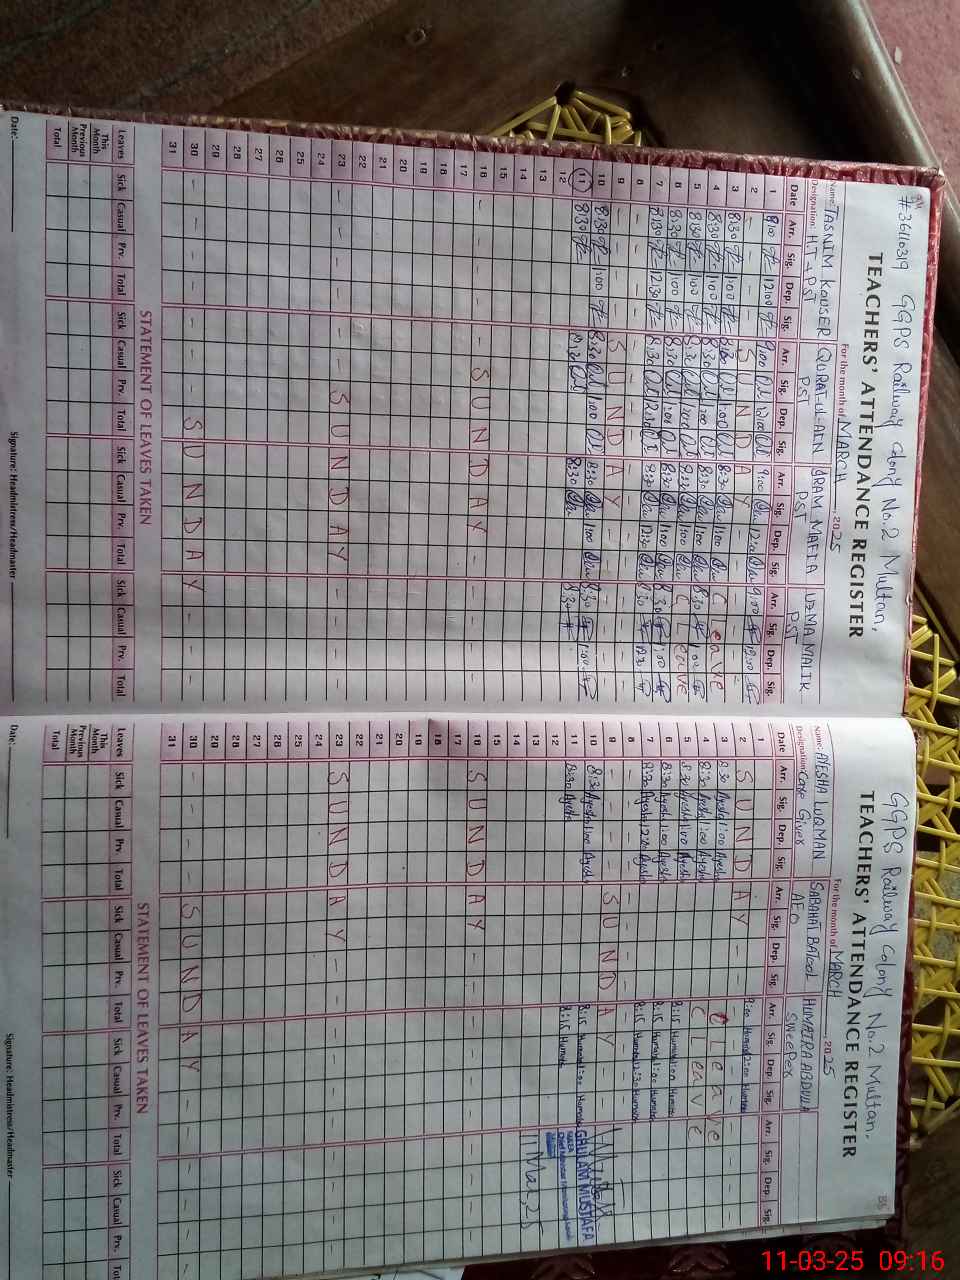 #36110319 GGPS Railway Colony No.2 Multan.
TEACHERS' ATTENDANCE REGISTER
For the month of MARCH, 2025
Name: TASNIM KOUSER QURAT-ul-AIN IRAM MAFIA UZMA MALIK
Designation: HT + PST PST PST PST
Date Arr. Sig. Dep. Sig. Arr. Sig. Dep. Sig. Arr. Sig. Dep. Sig. Arr. Sig. Dep. Sig.
1 8:00 12:00 9:00 12:00 9:00 12:00 9:00 12:00
2 - - - - S U N D A Y - -
3 8:30 1:00 8:30 1:00 8:30 1:00 C Leave
4 8:30 1:00 8:30 1:00 8:30 1:00 8:30 1:00
5 8:30 1:00 8:30 1:00 8:30 1:00 C Leave
6 8:30 1:00 8:30 1:00 8:30 1:00 8:30 1:00
7 8:30 12:30 8:30 12:30 8:30 12:30 8:30 12:30
8
9 - - - - S U N D A Y - -
10 8:30 1:00 8:30 1:00 8:30 1:00 8:30 1:00
11 8:30 8:30 8:30 8:30
12
13
14
15
16 - - - - S U N D A Y - - - -
17
18
19
20
21
22
23 - - - - - S U N D A Y - - - -
24
25
26
27
28
29
30 - - - - - - S U N D A Y - - -
31
STATEMENT OF LEAVES TAKEN
Leaves Sick Casual Prv. Total Sick Casual Prv. Total Sick Casual Prv. Total Sick Casual Prv. Total
This Month
Previous Month
Total
Date: Signature: Headmistress/Headmaster
GGPS Railway Colony No.2 Multan.
TEACHERS' ATTENDANCE REGISTER
For the month of MARCH, 2025
Name: AYESHA LUQMAN SABAHAT BATOOL HUMAIRA ABDULA
Designation: Care Giver AEO Sweeper
Date Arr. Sig. Dep. Sig. Arr. Sig. Dep. Sig. Arr. Sig. Dep. Sig. Arr. Sig. Dep. Sig.
1 9:00 Humaira 12:00 Humaira
2 S U N D A Y - - - -
3 8:30 Ayesha 1:00 Ayesha C Leave
4 8:30 Ayesha 1:00 Ayesha C Leave
5 8:30 Ayesha 1:00 Ayesha 8:15 Humaira 1:00 Humaira
6 8:30 Ayesha 1:00 Ayesha 8:15 Humaira 1:00 Humaira
7 8:30 Ayesha 12:30 Ayesha 8:15 Humaira 12:30 Humaira
8
9 - - - - S U N D A Y - - -
10 8:30 Ayesha 1:00 Ayesha 8:15 Humaira 1:00 Humaira
11 8:30 Ayesha 8:15 Humaira
GHULAM MUSTAFA
11 Mar, 25
12
13
14
15
16 S U N D A Y - - - -
17
18
19
20
21
22
23 S U N D A Y - - -
24
25
26
27
28
29
30 - - - - S U N D A Y - - -
31
STATEMENT OF LEAVES TAKEN
Leaves Sick Casual Prv. Total Sick Casual Prv. Total Sick Casual Prv. Total Sick Casual Prv. Total
This Month
Previous Month
Total
Date: Signature: Headmistress/Headmaster
11-03-25 09:16